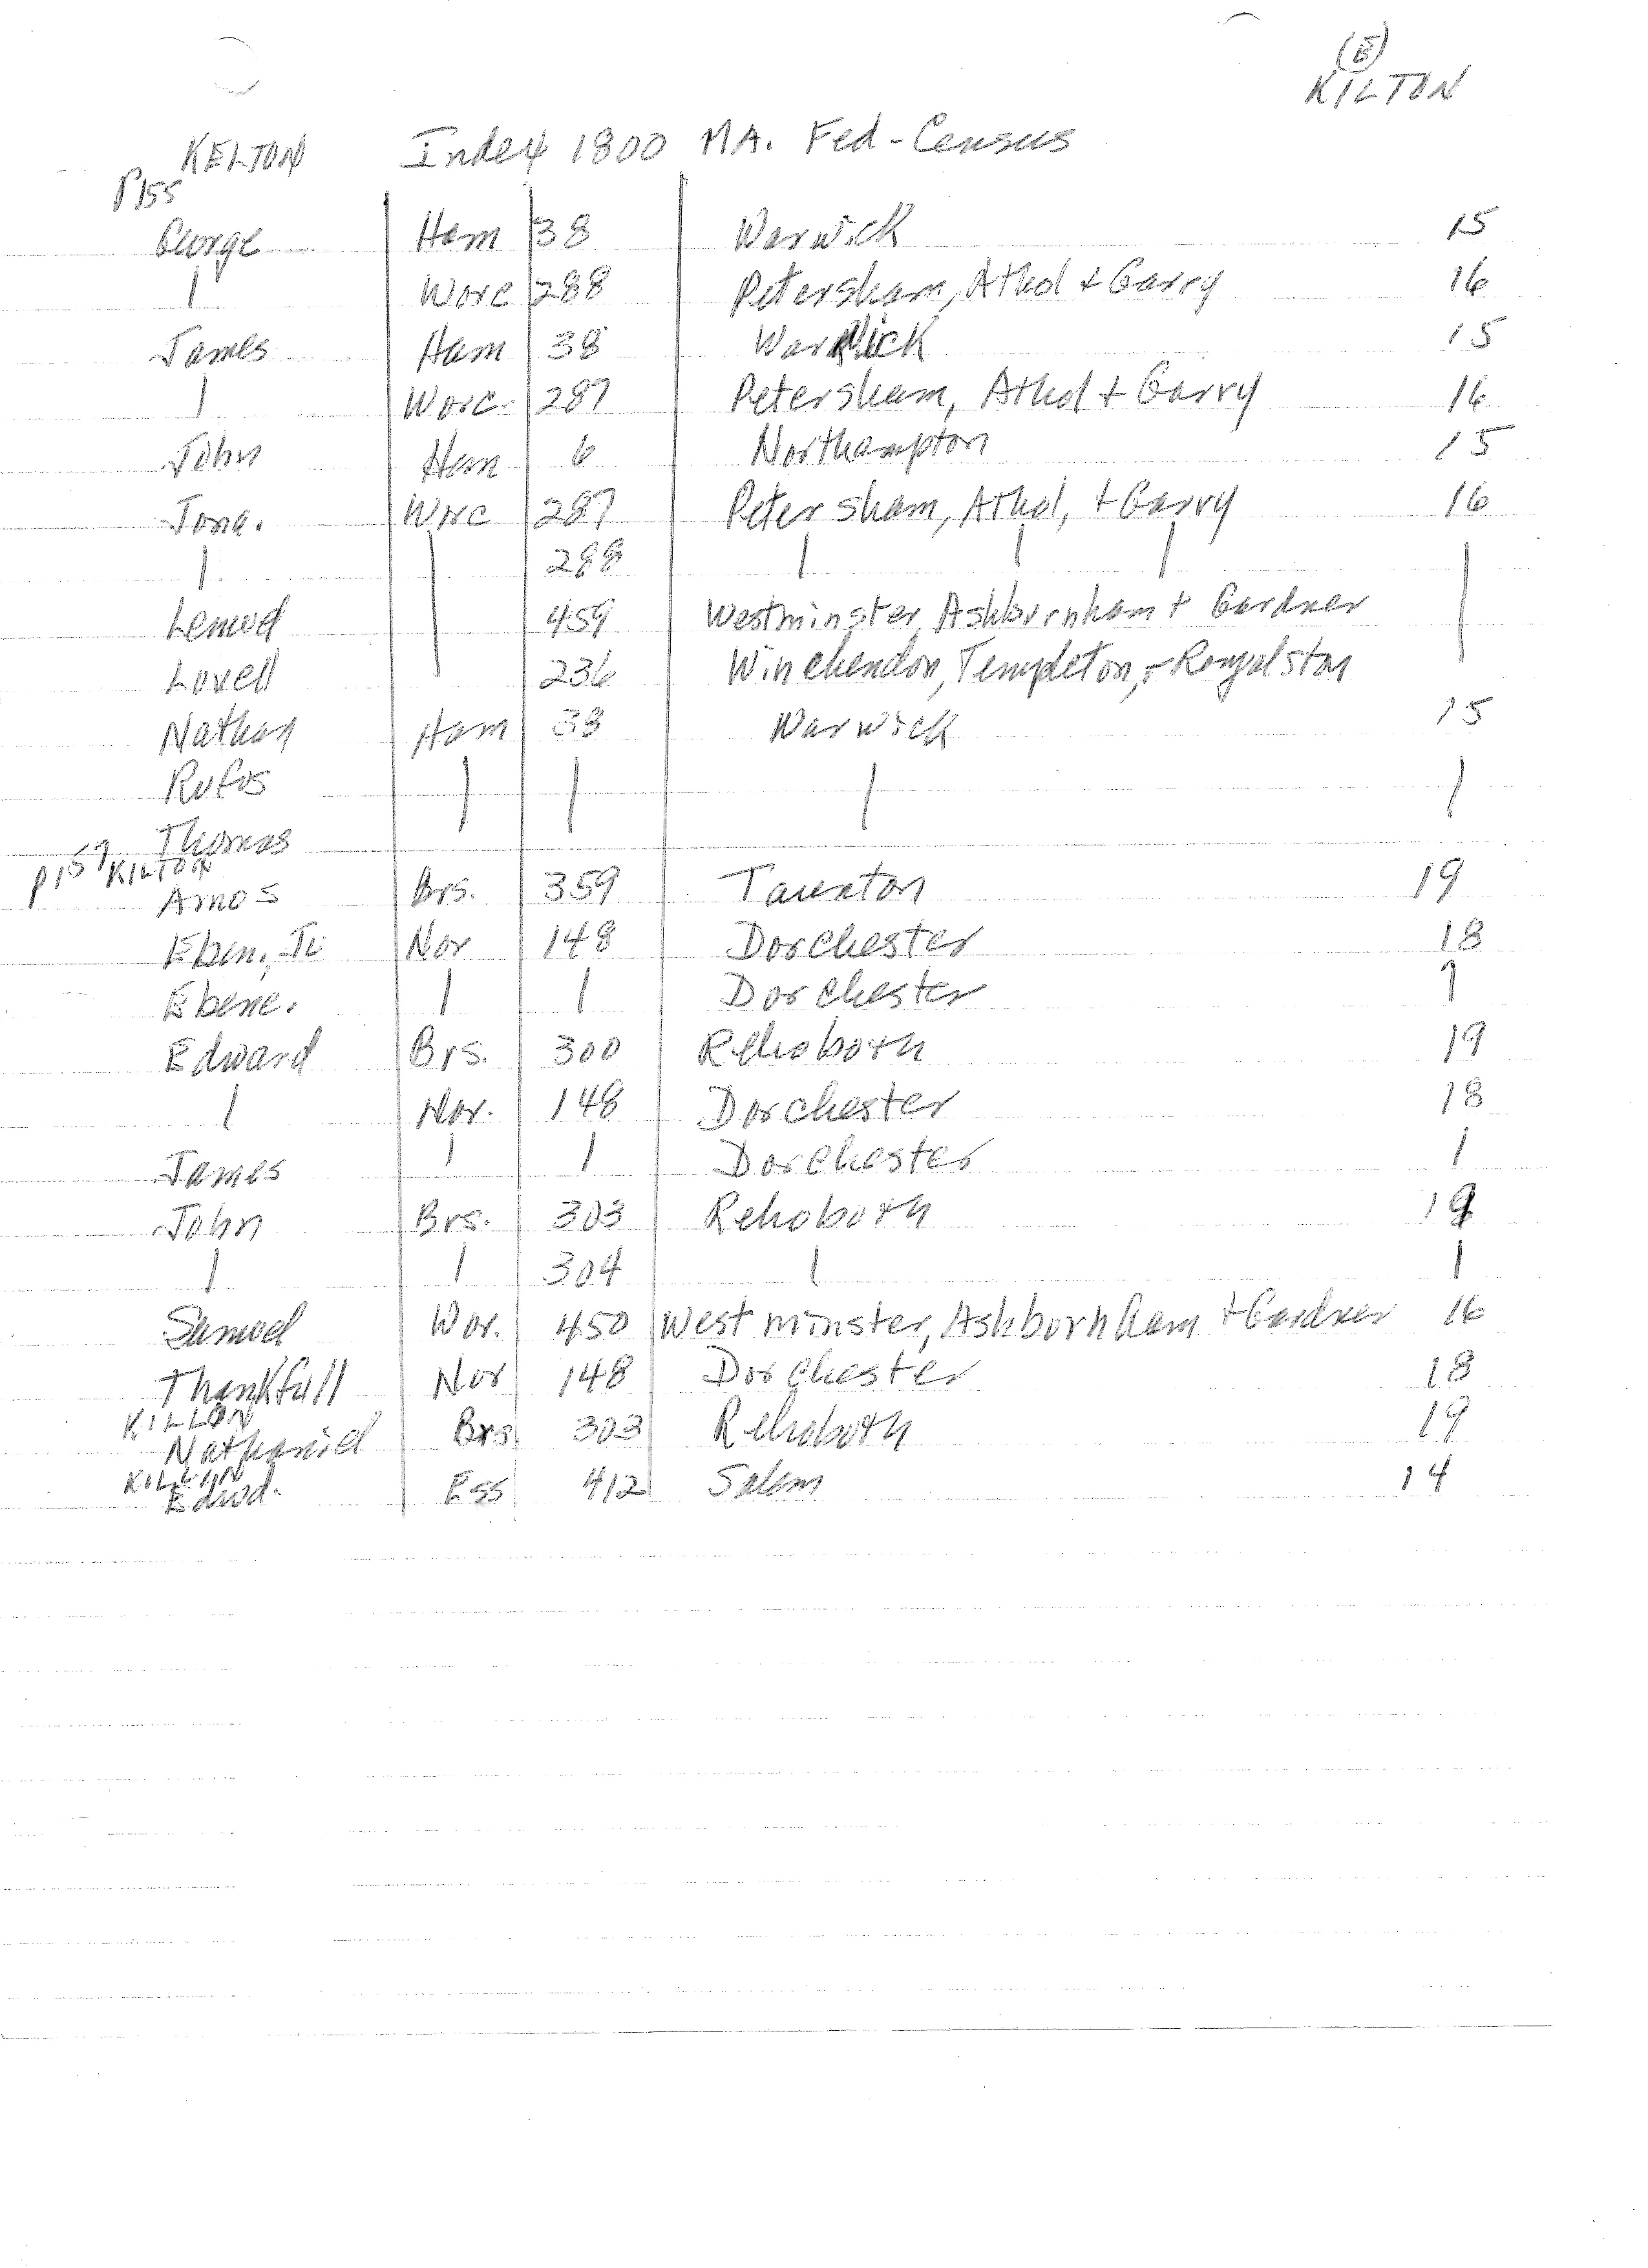 (E)
KILTON
KELTON Index 1800 MA. Fed-Census
P155
George Ham 38 Warwick 15
| Worc 288 Petersham, Athol + Garry 16
James Ham 38 Warwick 15
| Worc. 287 Petersham, Athol + Garry 16
John Ham 6 Northampton 15
Jona. Worc 287 Petersham, Athol, + Garry 16
| | 288 | | | |
Lemuel | 459 Westminster, Ashburnham + Gardner |
Lovell | 236 Winchendon, Templeton, + Royalston |
Nathan Ham 38 Warwick 15
Rufus | | | |
Thomas
P157 KILTON
Amos Brs. 359 Taunton 19
Eben., Ju Nor 148 Dorchester 18
Ebene. | | Dorchester |
Edward Brs. 300 Rehoboth 19
| Nor. 148 Dorchester 18
James | | Dorchester |
John Brs. 303 Rehoboth 19
| | 304 | |
Samuel Wor. 450 Westminster, Ashbornham + Gardner 16
Thankfull Nor 148 Dorchester 18
KILLON
Nathaniel Brs 303 Rehoboth 19
Edwd. Ess 412 Salem 14